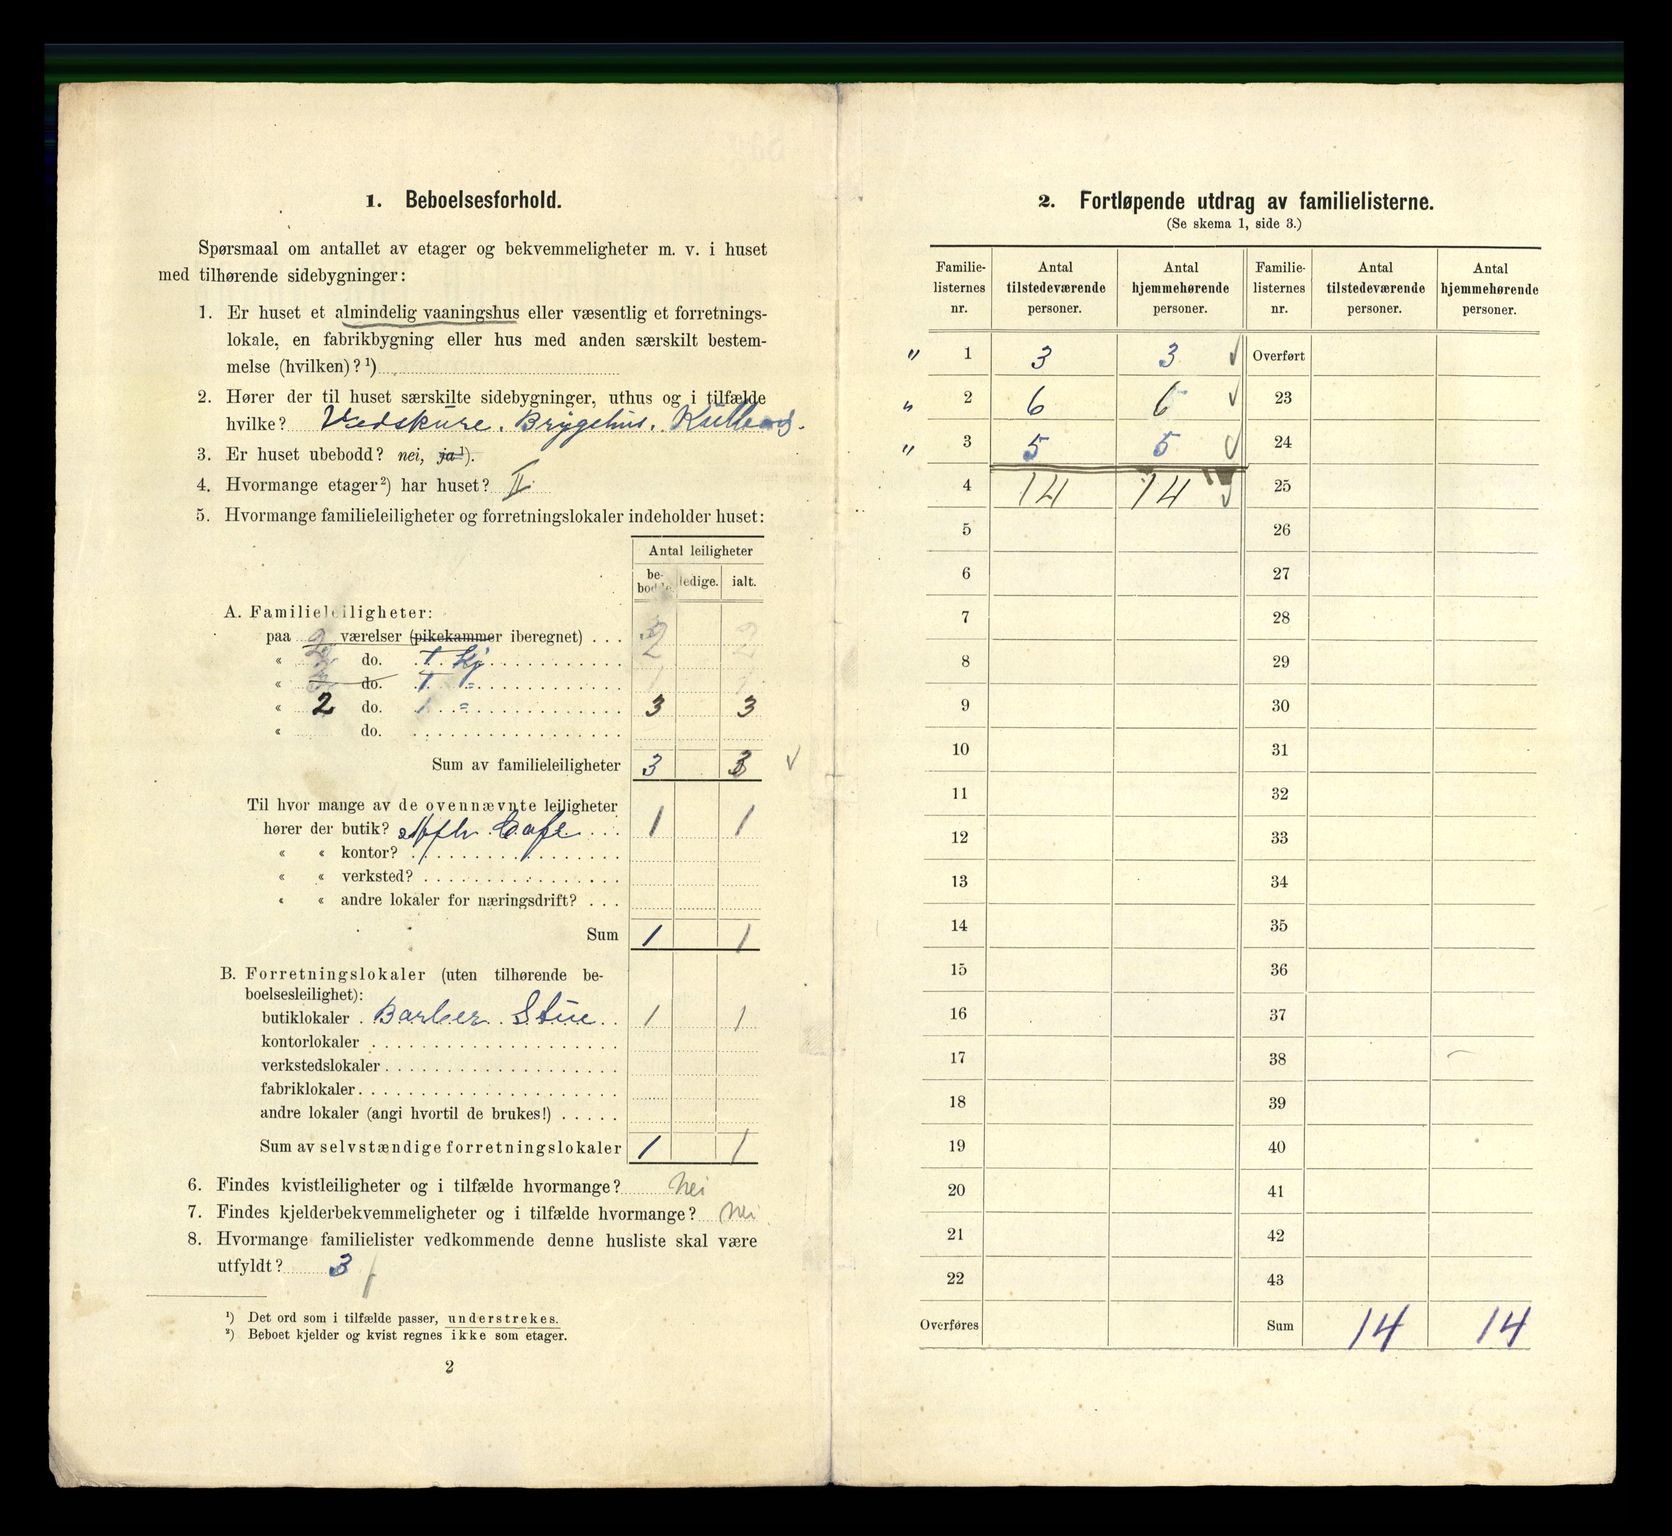 1. Beboelsesforhold.
Spørsmaal om antallet av etager og bekvemmeligheter m. v. i huset
med tilhørende sidebygninger:
1. Er huset et almindelig vaaningshus eller væsentlig et forretnings-
lokale, en fabrikbygning eller hus med anden særskilt bestem-
melse (hvilken)? ¹)
2. Hører der til huset særskilte sidebygninger, uthus og i tilfælde
hvilke? Vedskure. Bryggehus.
3. Er huset ubebodd? nei, ja ¹).
4. Hvormange etager ²) har huset? II
5. Hvormange familieleiligheter og forretningslokaler indeholder huset:
Antal leiligheter
be-
bodde. ledige. ialt.
A. Familieleiligheter:
paa 2 værelser (pikekammer iberegnet) . . . 2 2
« 2 do. 1 kj 2 2
« 3 do. 1 " 1 1
« 2 do. 1 " 3 3
« do.
Sum av familieleiligheter 3 3 √
Til hvor mange av de ovennævnte leiligheter
hører der butik? Cafe 1 1
« « kontor?
« « verksted?
« « andre lokaler for næringsdrift? . . .
Sum 1 1
B. Forretningslokaler (uten tilhørende be-
boelsesleilighet):
butiklokaler . Barber Stue 1 1
kontorlokaler
verkstedslokaler
fabriklokaler
andre lokaler (angi hvortil de brukes!)
Sum av selvstændige forretningslokaler 1 1
6. Findes kvistleiligheter og i tilfælde hvormange? Nei
7. Findes kjelderbekvemmeligheter og i tilfælde hvormange? Nei
8. Hvormange familielister vedkommende denne husliste skal være
utfyldt? 3
¹) Det ord som i tilfælde passer, understrekes.
²) Beboet kjelder og kvist regnes ikke som etager.
2
2. Fortløpende utdrag av familielisterne.
(Se skema 1, side 3.)
Familie- Antal Antal Familie- Antal Antal
listernes tilstedeværende hjemmehørende listernes tilstedeværende hjemmehørende
nr. personer. personer. nr. personer. personer.
" 1 3 3 √ Overført
" 2 6 6 √ 23
" 3 5 5 √ 24
4 14 14 √ 25
5 26
6 27
7 28
8 29
9 30
10 31
11 32
12 33
13 34
14 35
15 36
16 37
17 38
18 39
19 40
20 41
21 42
22 43
Overføres Sum 14 14